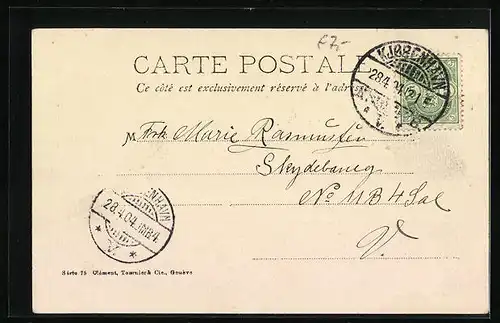 £7,-
CARTE POSTALE
Ce côté est exclusivement réservé à l'adre
KJØBENHAVN
28.4.04
V.
M Frk Marie Rasmussen
Skydebaneg
No 11 B 4 Sal
V.
ENHAVN
28.4.04. MB4
* V. *
Série 75 Clément, Tournier & Cie., Genève